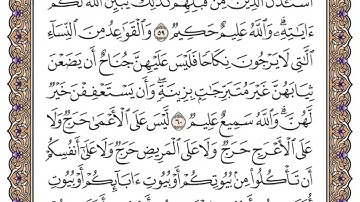 ٱسْتَـْٔذَنَ ٱلَّذِينَ مِن قَبْلِهِمْ كَذَٰلِكَ يُبَيِّنُ ٱللَّهُ لَكُمْ
ءَايَـٰتِهِۦ ۗ وَٱللَّهُ عَلِيمٌ حَكِيمٌ ۝٥٩ وَٱلْقَوَٰعِدُ مِنَ ٱلنِّسَآءِ
ٱلَّـٰتِى لَا يَرْجُونَ نِكَاحًا فَلَيْسَ عَلَيْهِنَّ جُنَاحٌ أَن يَضَعْنَ
ثِيَابَهُنَّ غَيْرَ مُتَبَرِّجَـٰتٍۭ بِزِينَةٍ ۖ وَأَن يَسْتَعْفِفْنَ خَيْرٌ
لَّهُنَّ ۗ وَٱللَّهُ سَمِيعٌ عَلِيمٌ ۝٦٠ لَّيْسَ عَلَى ٱلْأَعْمَىٰ حَرَجٌ وَلَا
عَلَى ٱلْأَعْرَجِ حَرَجٌ وَلَا عَلَى ٱلْمَرِيضِ حَرَجٌ وَلَا عَلَىٰٓ أَنفُسِكُمْ
أَن تَأْكُلُوا۟ مِنۢ بُيُوتِكُمْ أَوْ بُيُوتِ ءَابَآئِكُمْ أَوْ بُيُوتِ